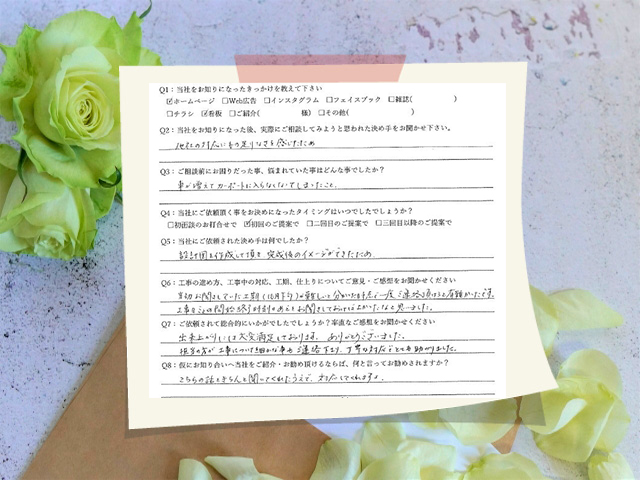 Q1：当社をお知りになったきっかけを教えて下さい
☑ホームページ □Web広告 □インスタグラム □フェイスブック □雑誌( )
□チラシ ☑看板 □ご紹介( 様) □その他( )
Q2：当社をお知りになった後、実際にご相談してみようと思われた決め手をお聞かせ下さい。
他社の対応にもの足りなさを感じたため
Q3：ご相談前にお困りだった事、悩まれていた事はどんな事でしたか？
車が増えてカーポートに入らなくなってしまったこと。
Q4：当社にご依頼頂く事をお決めになったタイミングはいつでしたでしょうか？
□初回談のお打合せで ☑初回のご提案で □二回目のご提案で □三回目以降のご提案で
Q5：当社にご依頼された決め手は何でしたか？
設計図を作成して頂き、完成後のイメージができたため
Q6：工事の進め方、工事中の対応、工期、仕上りについてご意見・ご感想をお聞かせください
当初お聞きしていた工期(10月下旬)が難しいと分かった時点で一度ご連絡頂けると有難かったです。
工事をする日の開始、終了時刻のめどもお聞きしておけばよかったなと思いました。
Q7：ご依頼されて総合的にいかがでしたでしょうか？率直なご感想をお聞かせください
出来上がりには大変満足しております。ありがとうございました。
担当の方が工事について細かな事もご連絡下さり、丁寧な対応がとても助かりました。
Q8：仮にお知り合いへ当社をご紹介・お勧め頂けるならば、何と言ってお勧めされますか？
こちらの話をきちんと聞いてくれたうえで、対応してくれますよ。